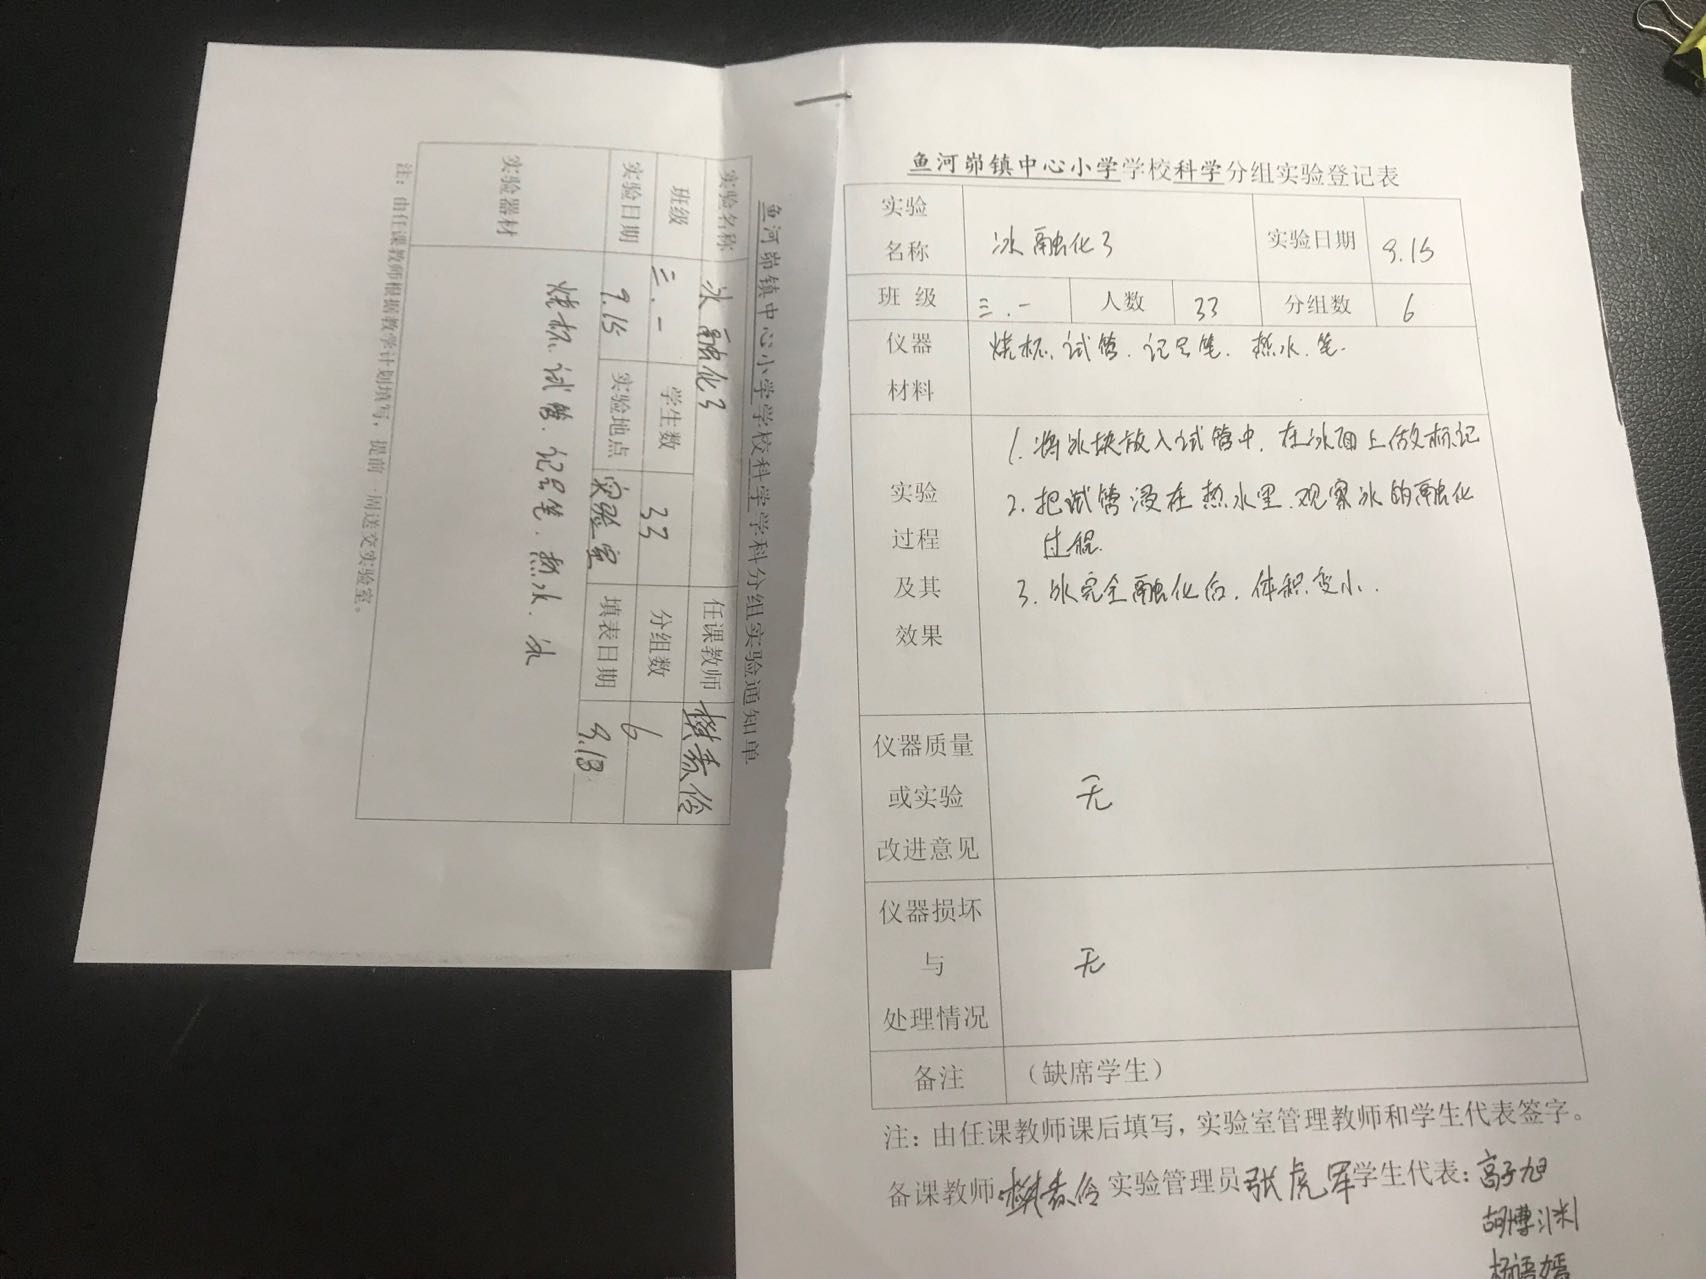 鱼河峁镇中心小学学校科学学科分组实验通知单
实验名称 冰融化了 任课教师
班级 三.一 学生数 33 分组数 6
实验日期 9.15 实验地点 实验室 填表日期 9.13
实验器材 烧杯、试管、记号笔、热水、冰
注：由任课教师根据教学计划填写，提前一周送交实验室。
鱼河峁镇中心小学学校科学分组实验登记表
实验名称 冰融化了 实验日期 9.15
班级 三.一 人数 33 分组数 6
仪器材料 烧杯、试管、记号笔、热水、笔.
实验过程及其效果
1. 将冰块放入试管中，在冰面上做标记
2. 把试管浸在热水里，观察冰的融化
过程.
3. 冰完全融化后，体积变小.
仪器质量或实验改进意见 无
仪器损坏与处理情况 无
备注 （缺席学生）
注：由任课教师课后填写，实验室管理教师和学生代表签字。
备课教师 实验管理员 张虎军 学生代表：高子旭
胡博渊
杨语嫣